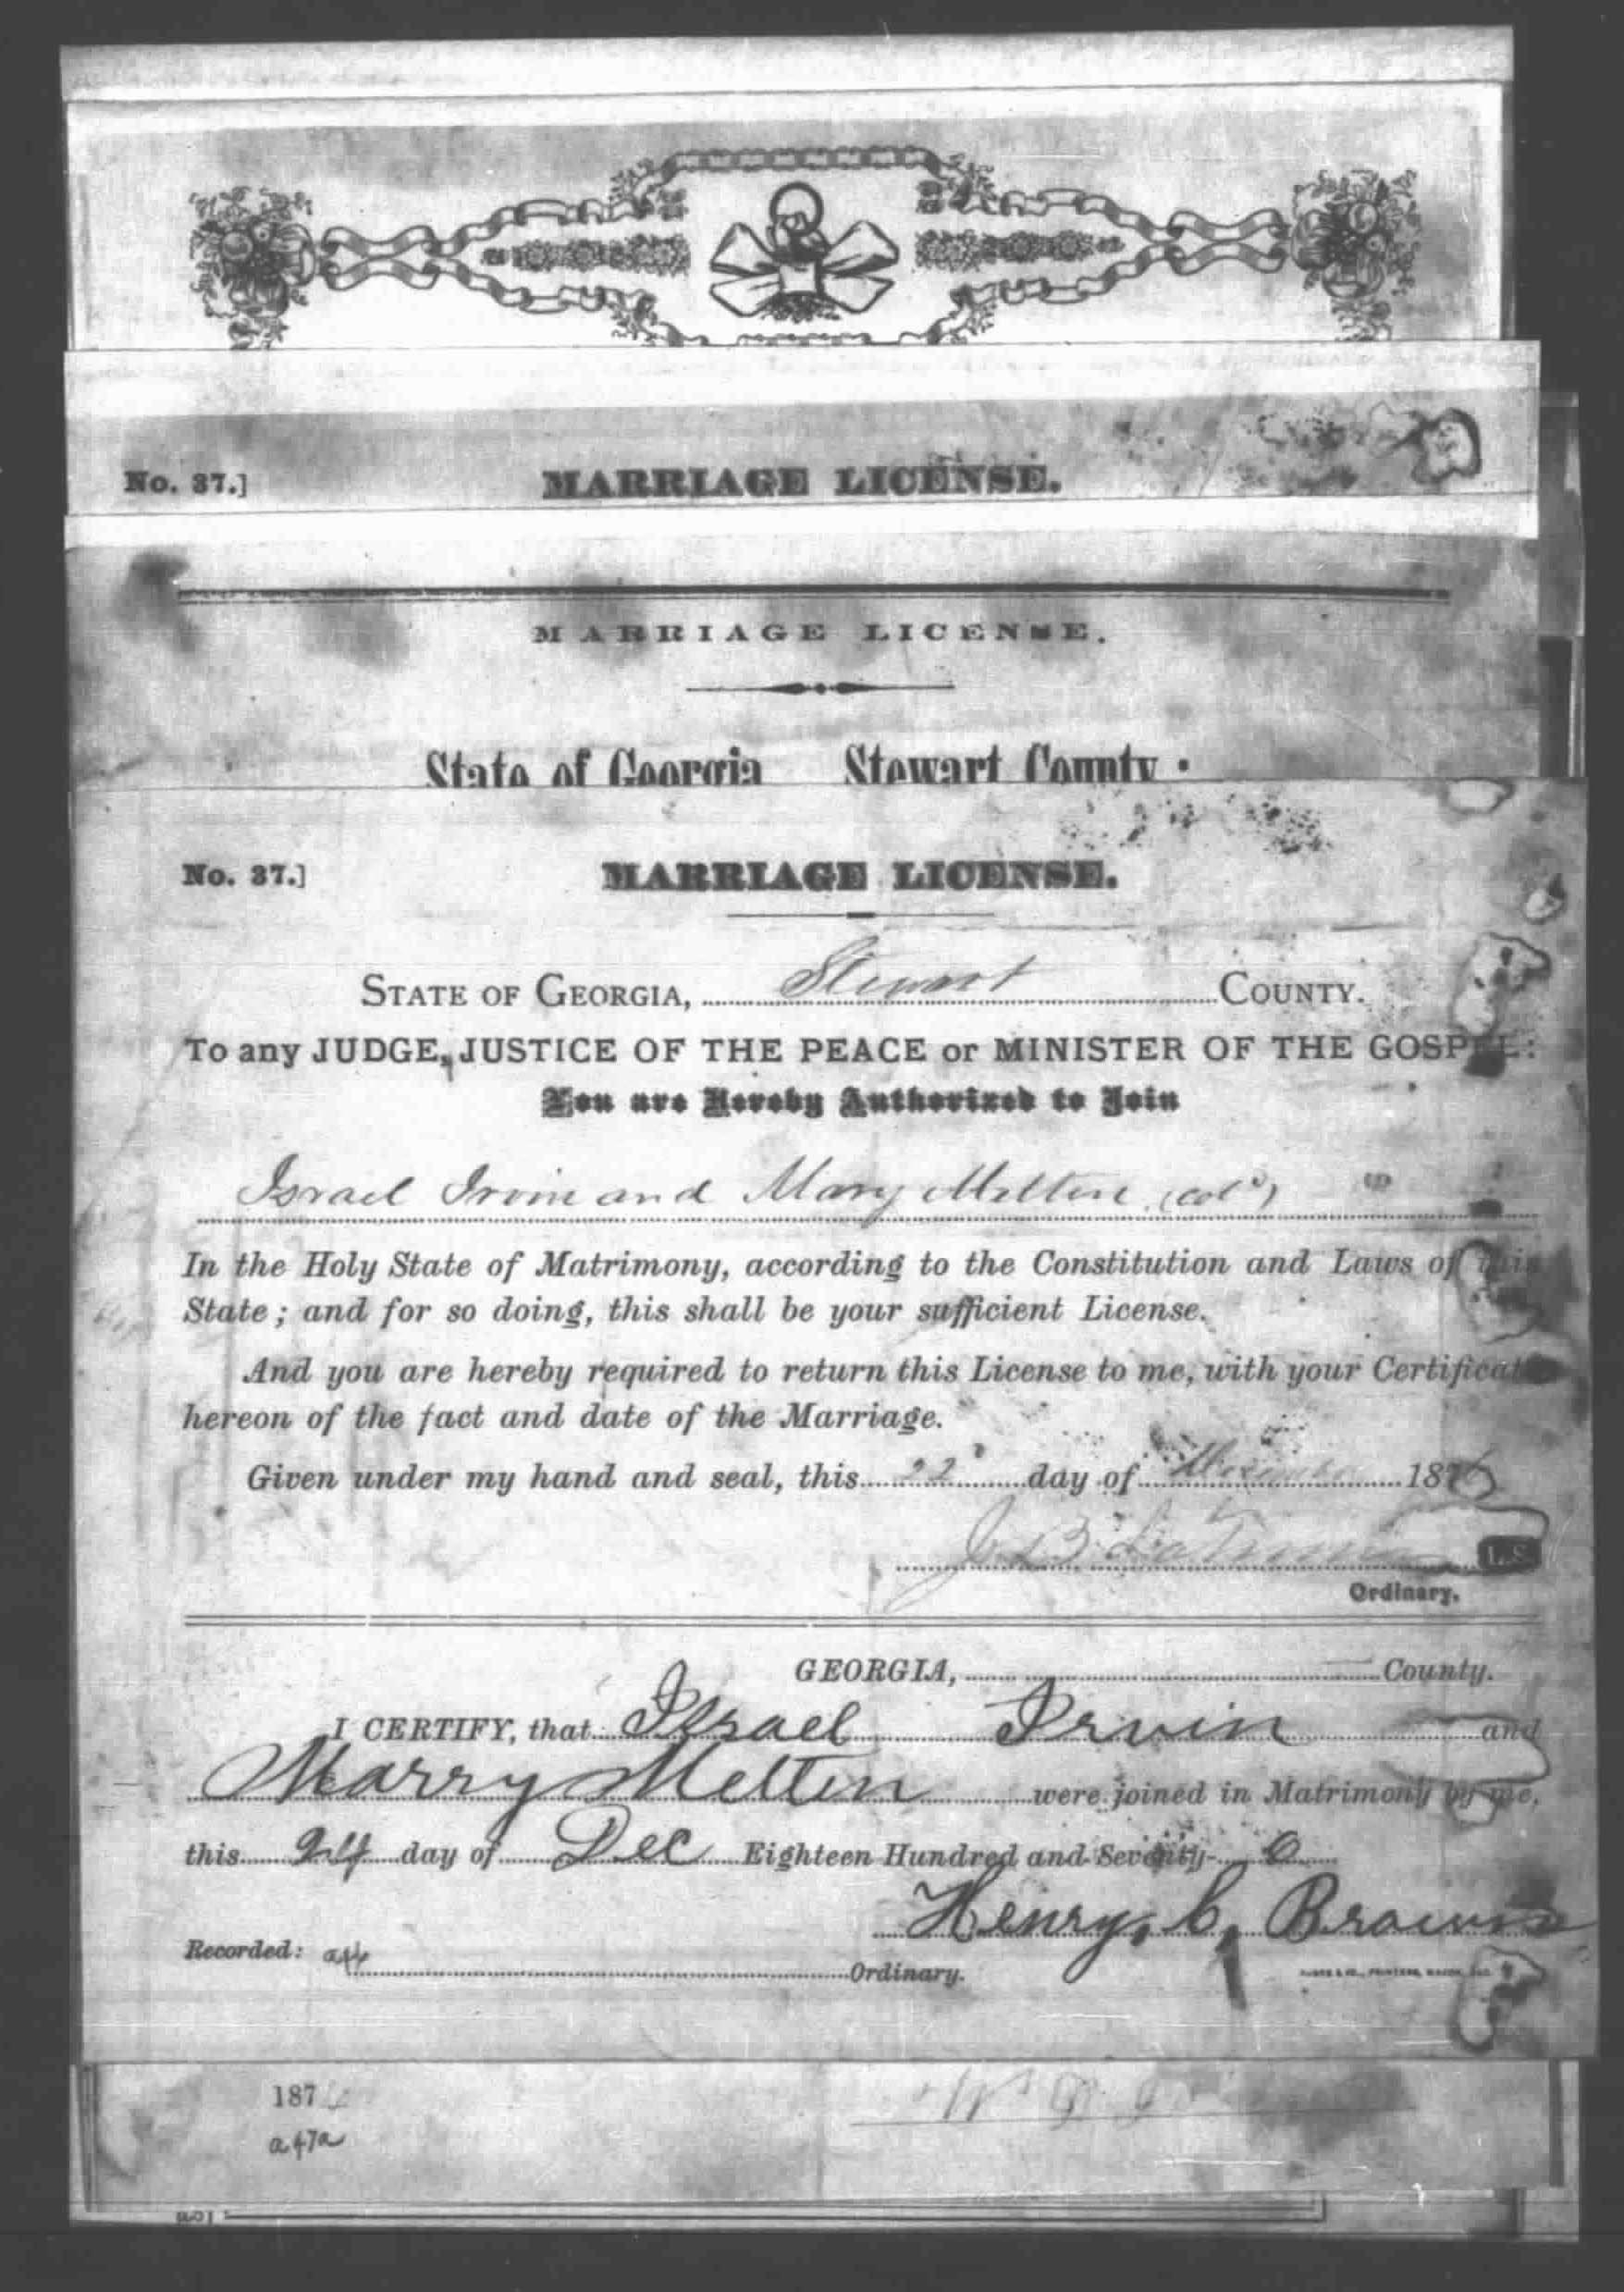 No. 37.] MARRIAGE LICENSE.
MARRIAGE LICENSE.
State of Georgia Stewart County
No. 37.] MARRIAGE LICENSE.
STATE OF GEORGIA, Stewart COUNTY.
To any JUDGE, JUSTICE OF THE PEACE or MINISTER OF THE GOSPEL:
You are Hereby Authorized to Join
Israel Irvin and Mary Melten (cold)
In the Holy State of Matrimony, according to the Constitution and Laws of this
State; and for so doing, this shall be your sufficient License.
And you are hereby required to return this License to me, with your Certificate
hereon of the fact and date of the Marriage.
Given under my hand and seal, this 22 day of December 1876
J. B. L.S.
Ordinary.
GEORGIA, County.
I CERTIFY, that Israel Irvin and
Marry Melten were joined in Matrimony by me,
this 24 day of Dec Eighteen Hundred and Seventy- 6
Henry, C, Brown
Recorded: Ordinary.
187
a47a